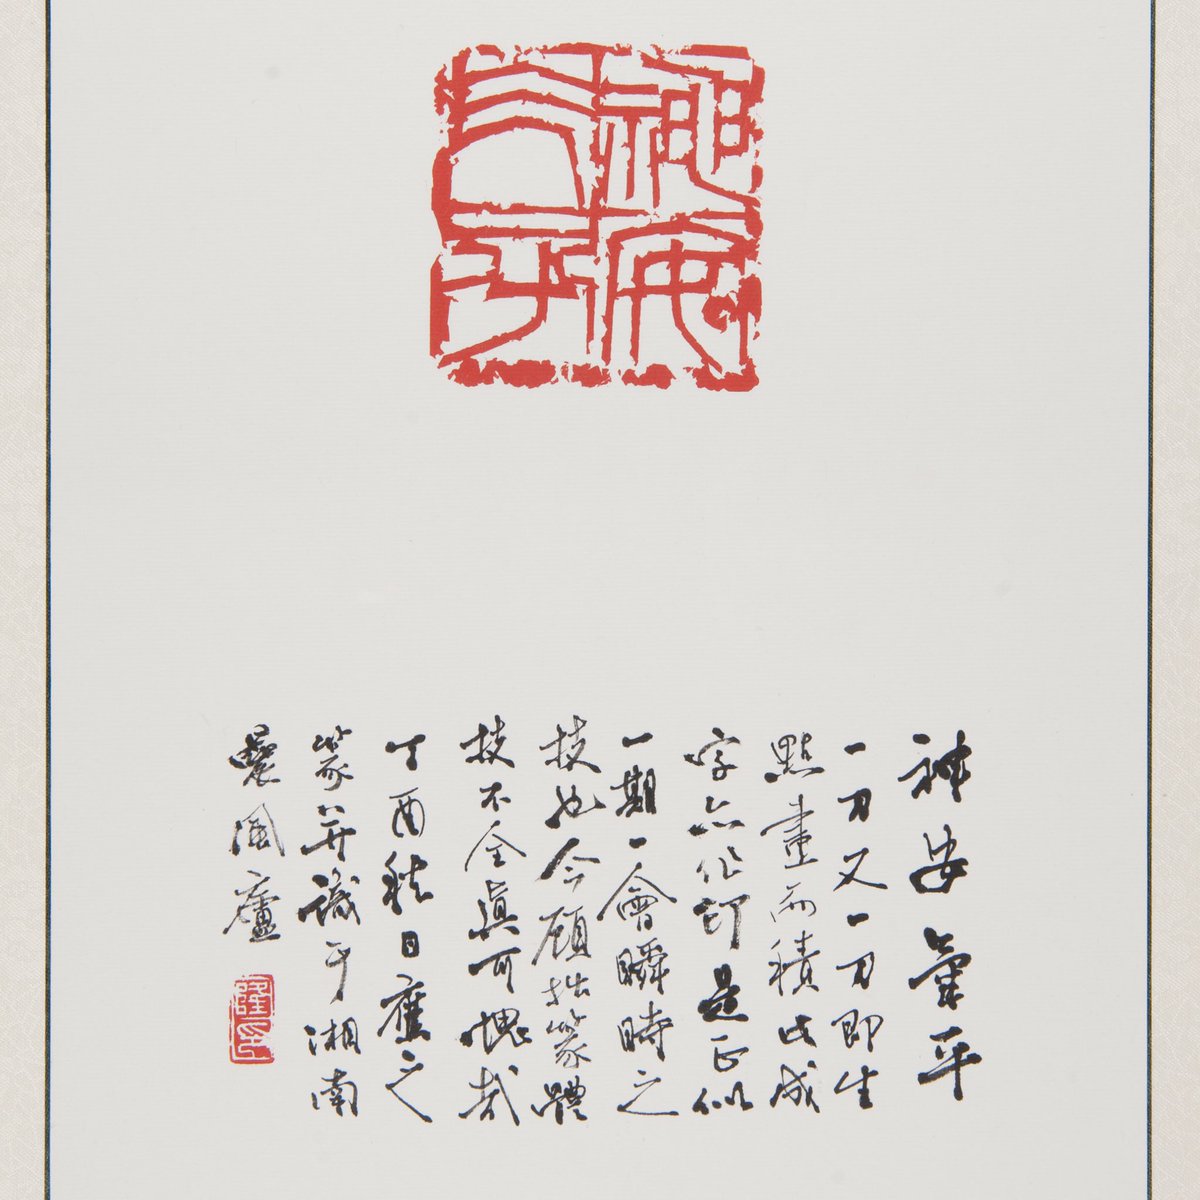 神安气平
神安氣平
一刀又一刀即生
點畫而積以成
字六作訂是正似
一期一會瞬時之
技也今顧拙篆體
技不全真可愧哉
丁酉秋日應之
篆并識于湘南
晨風廬